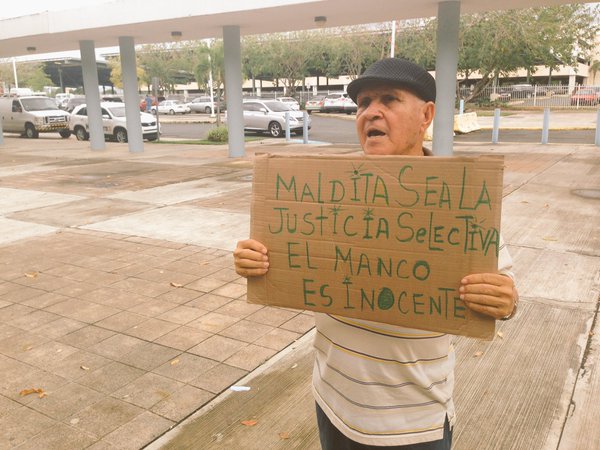 MALDITA SEA LA
JUSTICIA SELECTIVA
EL MANCO
ES INOCENTE